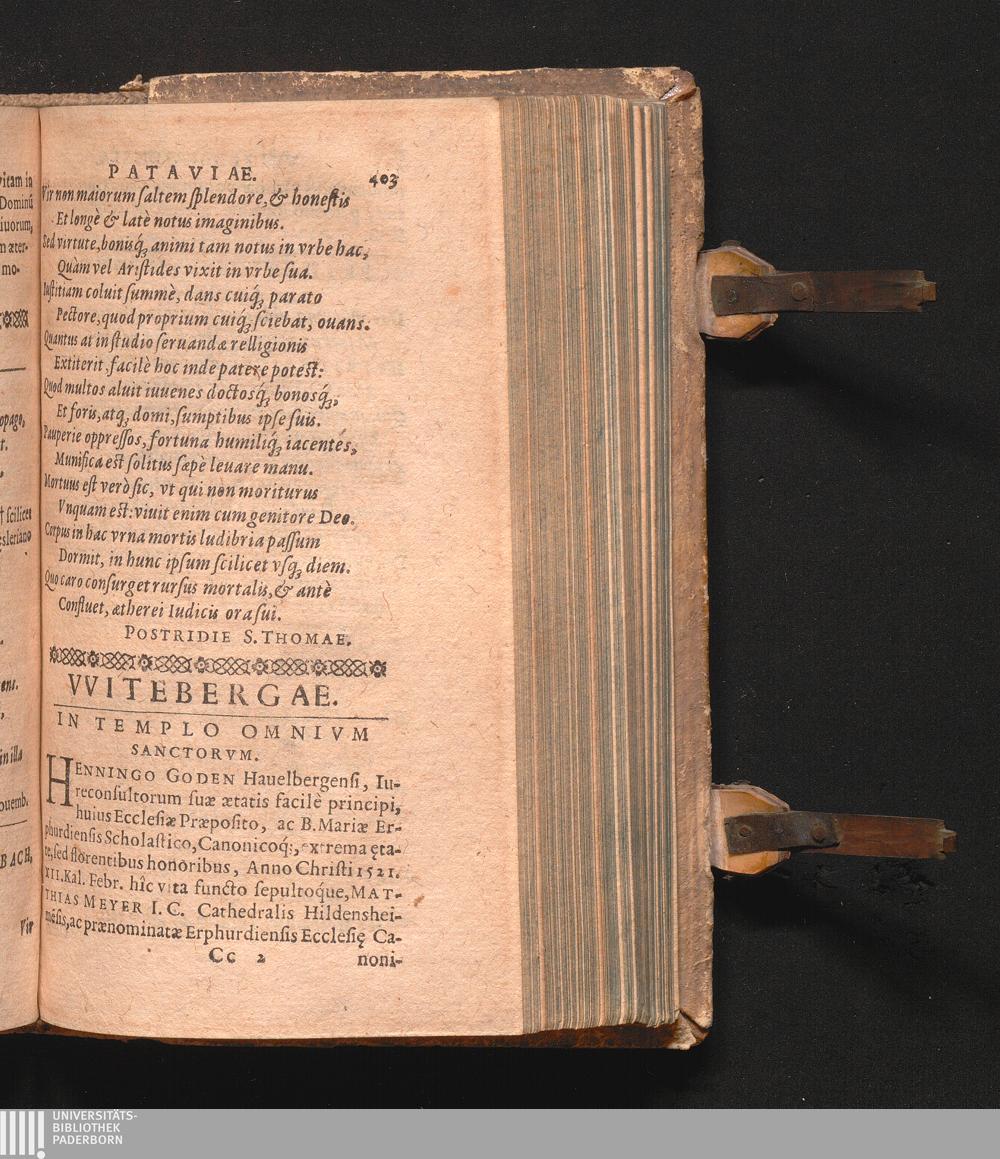 vitam in
Dominū
iuorum,
m æter-
mo-
opago,
t.
† scilicet
esleriano
ens.
in illa
ouemb.
BACH,
Vir
PATAVIAE. 403
Vir non maiorum saltem splendore, & honestis
Et longè & latè notus imaginibus.
Sed virtute, bonisq́ꝫ animi tam notus in vrbe hac,
Quàm vel Aristides vixit in vrbe sua.
Iustitiam coluit summè, dans cuiq́ꝫ parato
Pectore, quod proprium cuiq́ꝫ sciebat, ouans.
Quantus at in studio seruandæ relligionis
Extiterit, facilè hoc inde patere potest:
Quod multos aluit iuuenes doctosq́ꝫ bonosq́ꝫ,
Et foris, atqꝫ domi, sumptibus ipse suis.
Pauperie oppressos, fortuna humiliq́ꝫ iacentés,
Munifica est solitus sæpè leuare manu.
Mortuus est verò sic, vt qui non moriturus
Vnquam est: viuit enim cum genitore Deo.
Corpus in hac vrna mortis ludibria passum
Dormit, in hunc ipsum scilicet vsqꝫ diem.
Quo caro consurget rursus mortalis, & antè
Confluet, ætherei Iudicis ora sui.
POSTRIDIE S. THOMAE.
VVITEBERGAE.
IN TEMPLO OMNIVM
SANCTORVM.
HENNINGO GODEN Hauelbergensi, Iu-
reconsultorum suæ ætatis facilè principi,
huius Ecclesiæ Præposito, ac B. Mariæ Er-
phurdiensis Scholastico, Canonicoq́;, extrema ęta-
te, sed florentibus honoribus, Anno Christi 1521.
XII. Kal. Febr. hîc vita functo sepultoque, MAT-
THIAS MEYER I. C. Cathedralis Hildenshei-
mēsis, ac prænominatæ Erphurdiensis Ecclesię Ca-
Cc 2 noni-
UNIVERSITÄTS-
BIBLIOTHEK
PADERBORN